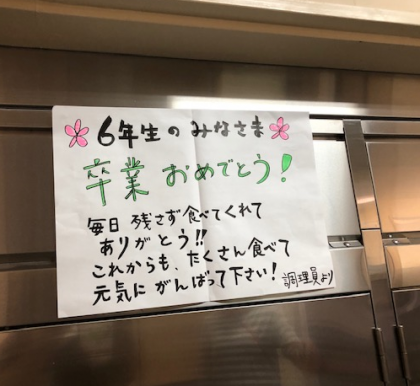 6年生のみなさま
卒業おめでとう!
毎日 残さず食べてくれて
ありがとう!!
これからも、たくさん食べて
元気にがんばって下さい!
調理員より